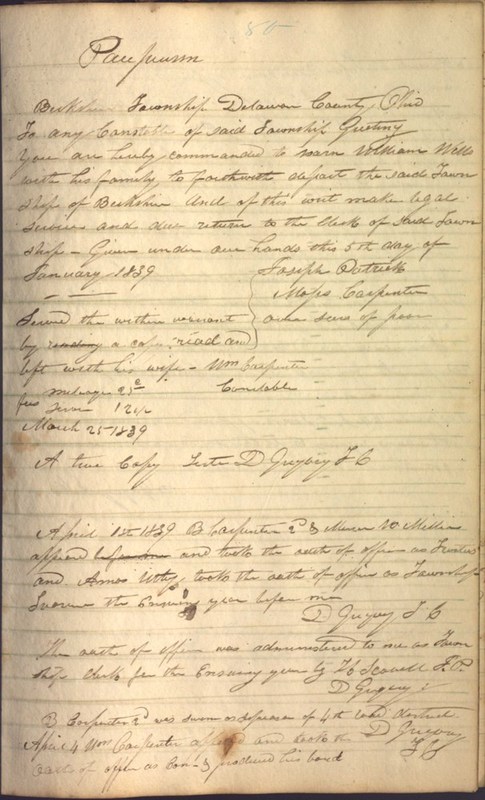 50
Pauperism
Berkshire Township Delaware County Ohio
To any Constable of said Township Greeting
You are hereby commanded to warn William Will
with his family to forthwith depart the said Town
ship of Berkshire and of this writ make legal
service and due return to the Clerk of said Town
ship - Given under our hands this 5th day of
January 1839
Joseph Patrick
Moses Carpenter
over seers of poor
Served the within warrant
by reading a copy read and
left with his wife - Wm Carpenter
Constable
fees mileage 25c
Serv 12½
March 25 1839
A true Copy Teste D Gregory T C
April 1st 1839 B Carpenter 2d &
appeard before me and took the oath of office as Trustees
and Amos Utley took the oath of office as Township
the Ensuing year before me
D Gregory T C
The oath of office was administered to me as Town
ship Clerk for the Ensuing year by Scovell J.P.
D Gregory
B Carpenter 2d was sworn as supervisor of 4th road district
D Gregory
T C
April 4 Wm Carpenter appeard and took the
oath of office as Con & produced his bond